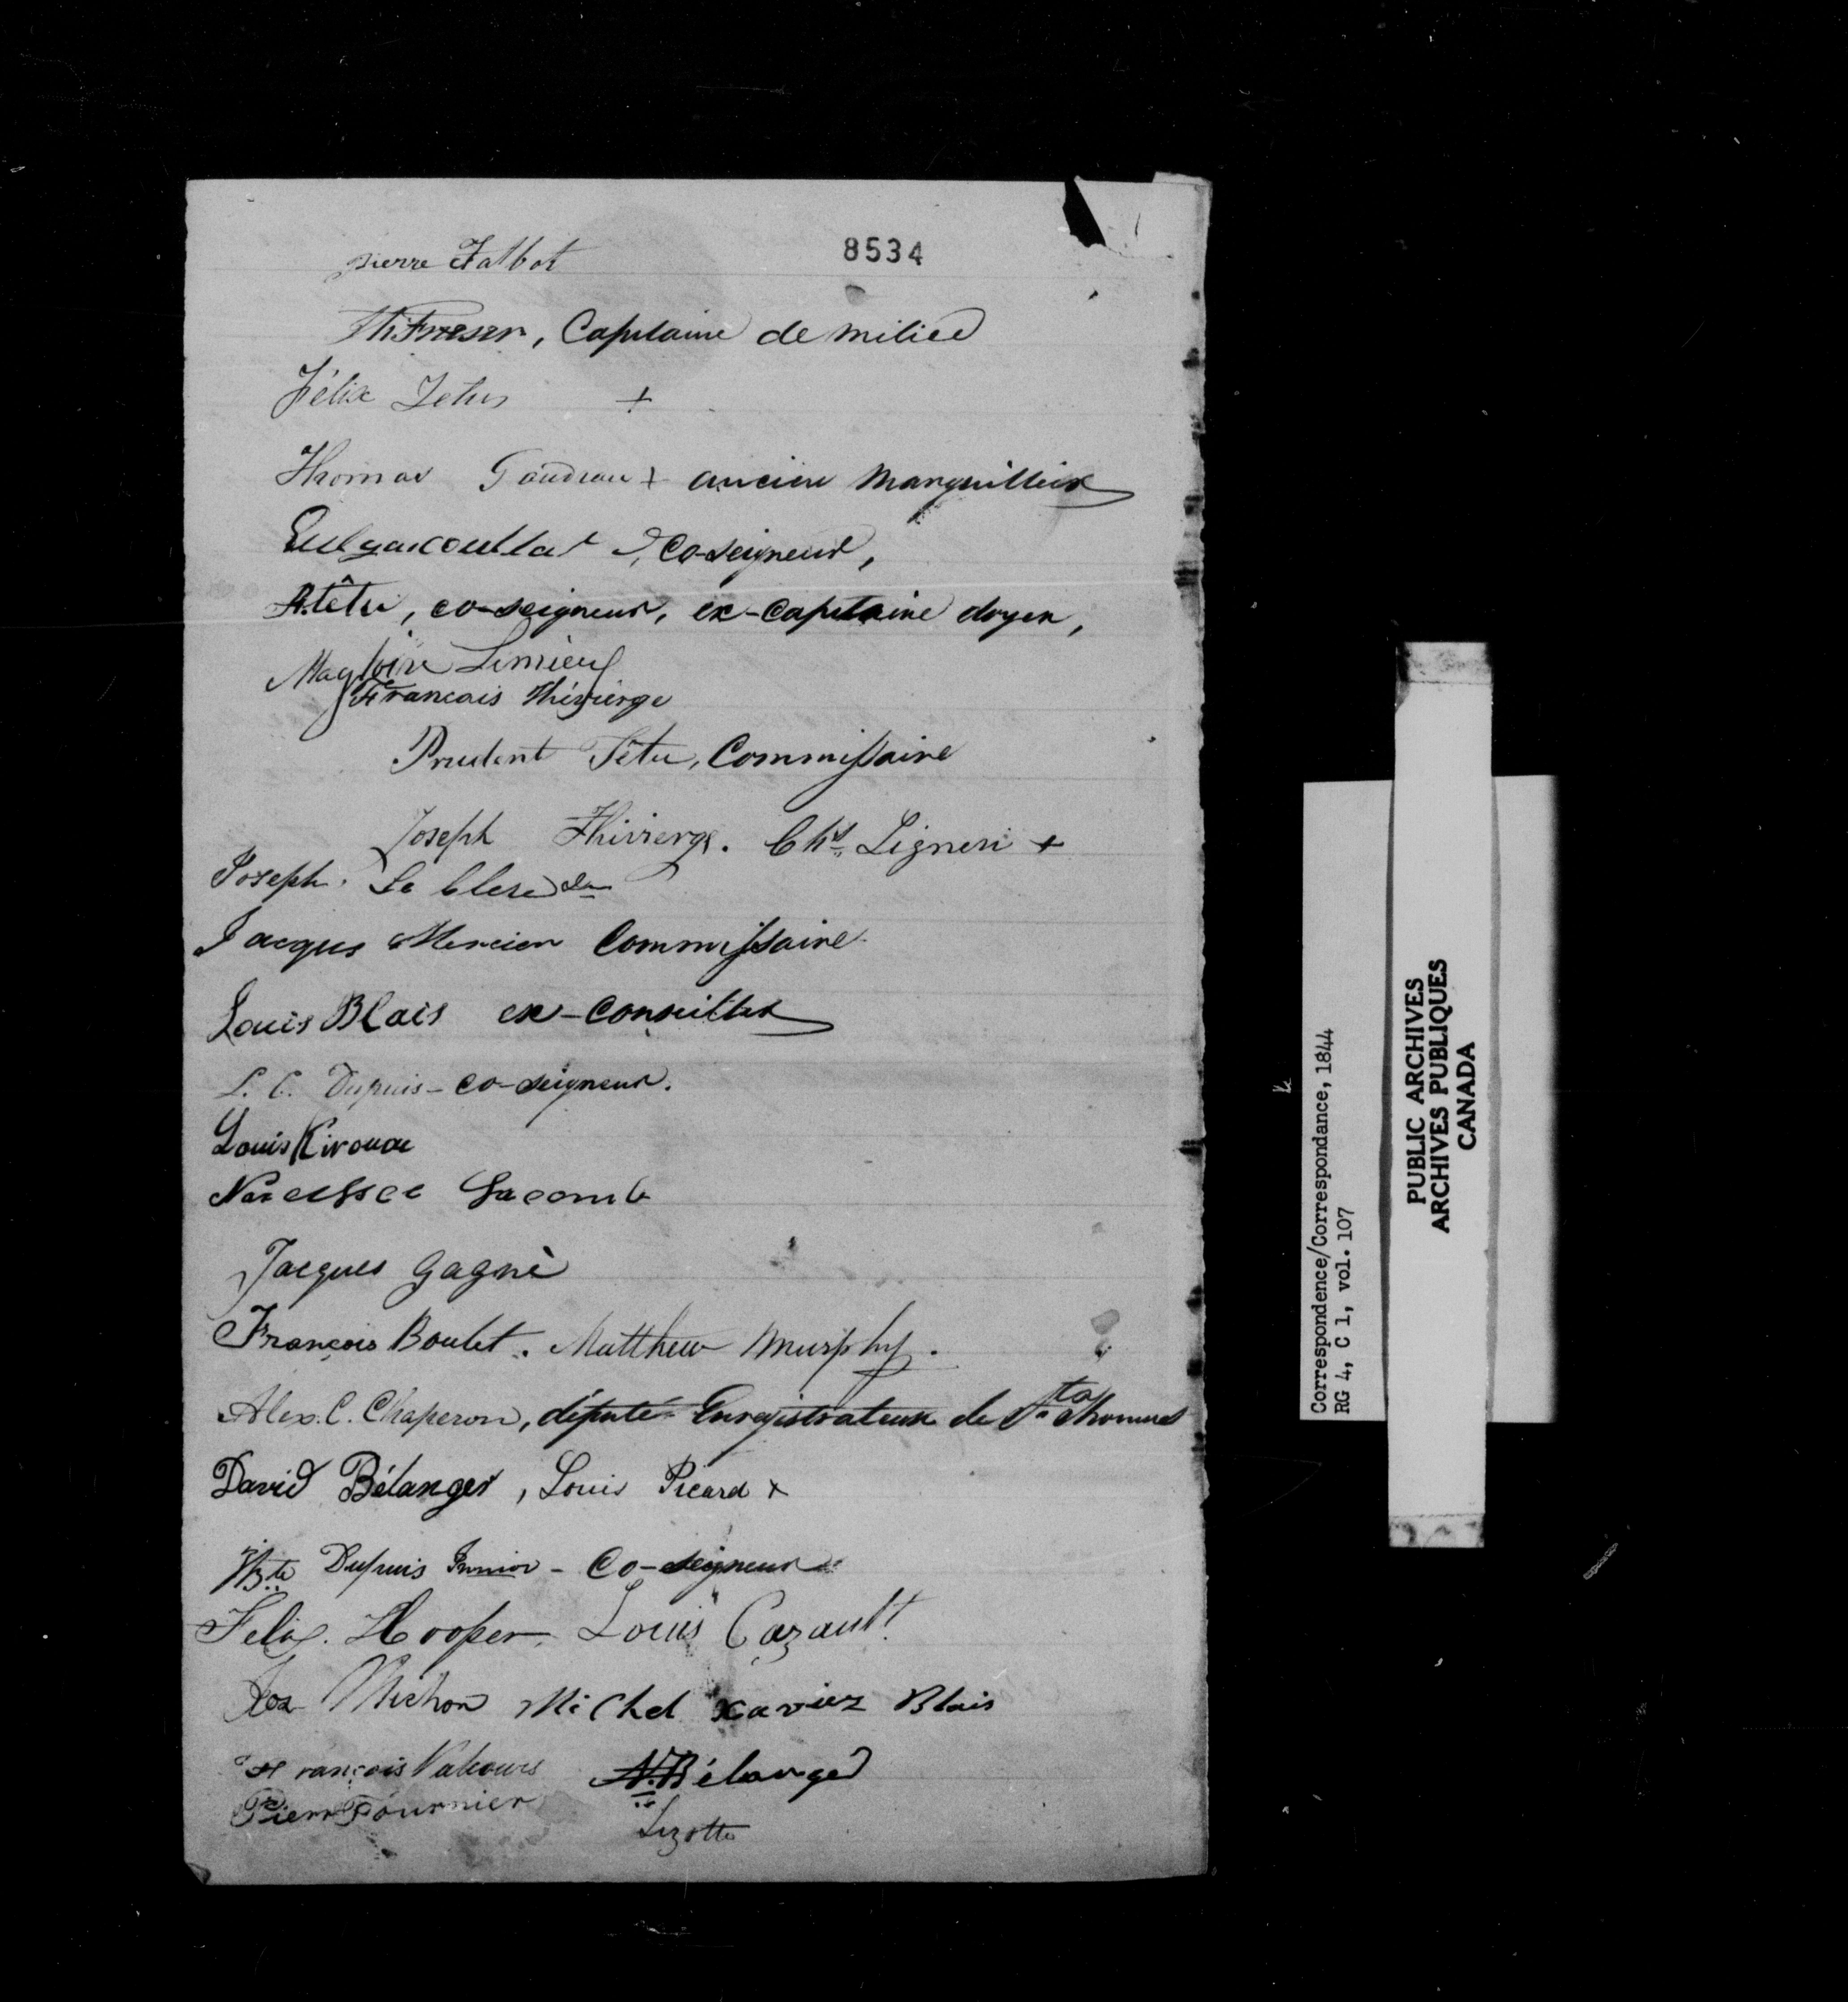 8534
pierre Talbot
Th: Fraser, Capitaine de milice
Félix Tetu +
Thomas Gaudrau + ancien Marguillier
Couillar, Co-seigneur,
F. têtu, co-seigneur, ex-Capitaine doyen,
Magloire Lemieux
Francais Thivierge
Prudent Tétu, Commissaire
Joseph Thivierge. Chs Ligneri +
Joseph. Le Clere
Jacques Mercier Commissaire
Louis Blais ex-Conseiller
L. C. Dupuis - co-seigneur.
Louis Kirouac
Narcisse Lacomb
Jacques Gagné
François Boulet. Matthew Murphy.
Alex. C. Chaperon, député-Enregistrateur de St. Thomas
David Bélanger, Louis Picard x
JBte Dupuis Junior - Co-seigneur
Felix. Hooper. Louis Cazault.
Jos Michon Michel Xavier Blais
François Valcours N. Bélanger
Pierr Fournier
Lizotte
Correspondence/Correspondance, 1844
RG 4, C 1, vol. 107
PUBLIC ARCHIVES
ARCHIVES PUBLIQUES
CANADA